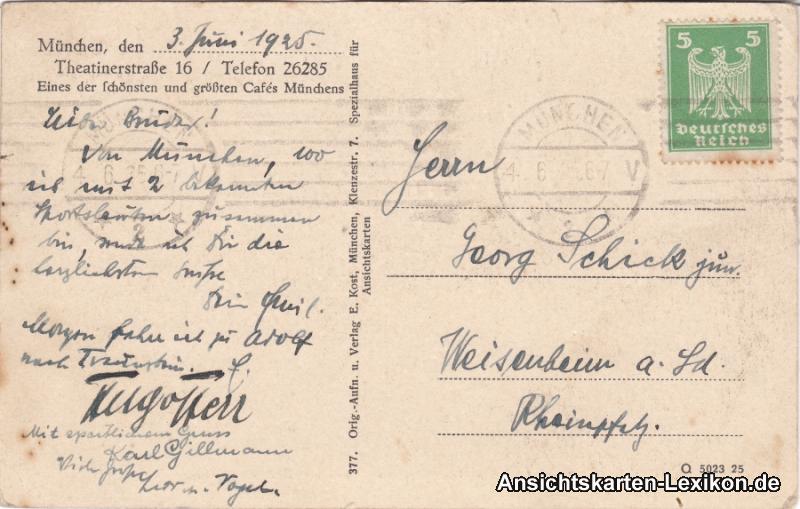 München, den 3. Juni 1925.
Theatinerstraße 16 / Telefon 26285
Eines der schönsten und größten Cafés Münchens
Lieber Bruder!
Von München, wo
ich mit 2 bekannten
Sportsleuten zusammen
bin, send ich Dir die
herzlichsten Grüße
Dein Emil.
Morgen fahre ich zu Adolf
nach Traunstein. E.
Hugo Herr
Mit sportlichem Gruss
Karl Gillmann
Viele Grüße
377. Orig.-Aufn. u. Verlag E. Kost, München, Klenzestr. 7. Spezialhaus für
Ansichtskarten
5 5
Deutsches
Reich
MÜNCHEN
V
Herrn
Georg Schick jun.
Weisenheim a. Sd.
Rheinpfalz.
Q 5023 25
Ansichtskarten-Lexikon.de